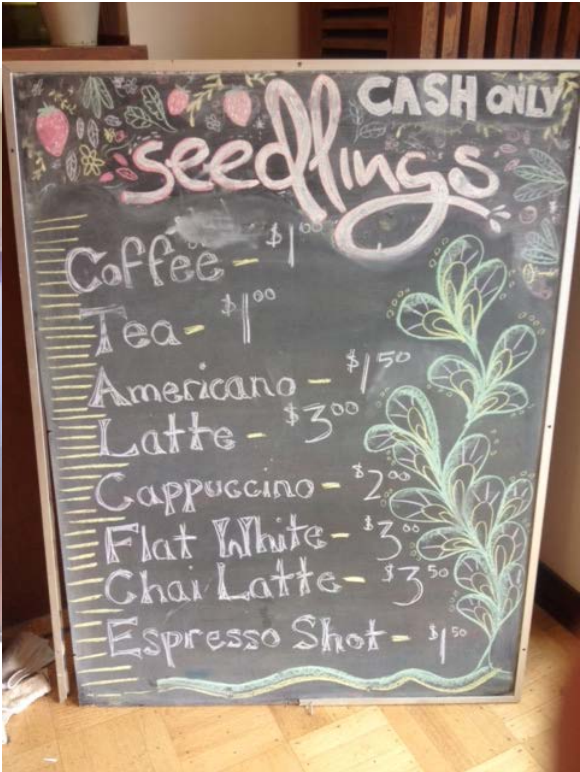 CASH ONLY
seedlings
Coffee - $1.00
Tea - $1.00
Americano - $1.50
Latte - $3.00
Cappuccino - $2.00
Flat White - $3.00
Chai Latte - $3.50
Espresso Shot - $1.50